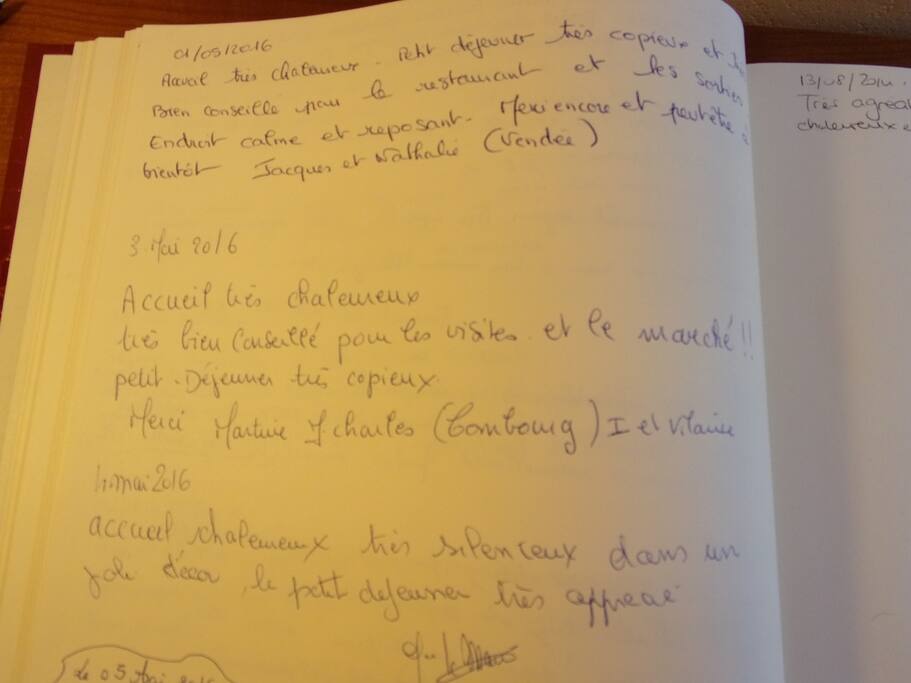 01/05/2016
Accueil très chaleureux. Petit déjeuner très copieux et
Bien conseillé pour le restaurant et les sorties
Endroit calme et reposant. Merci encore et peut être à
bientôt Jacques et Nathalie (Vendée)
3 Mai 2016
Accueil très chaleureux
très bien Conseillé pour les visites et le marché!!
petit. Déjeuner très copieux.
Merci Martine J charles (Combourg) I et Vilaine
4 mai 2016
accueil chaleureux très silencieux dans un
joli décor, le petit dejeuner très apprecié
Le 05
13/08/201
Très agréa
chaleureux e